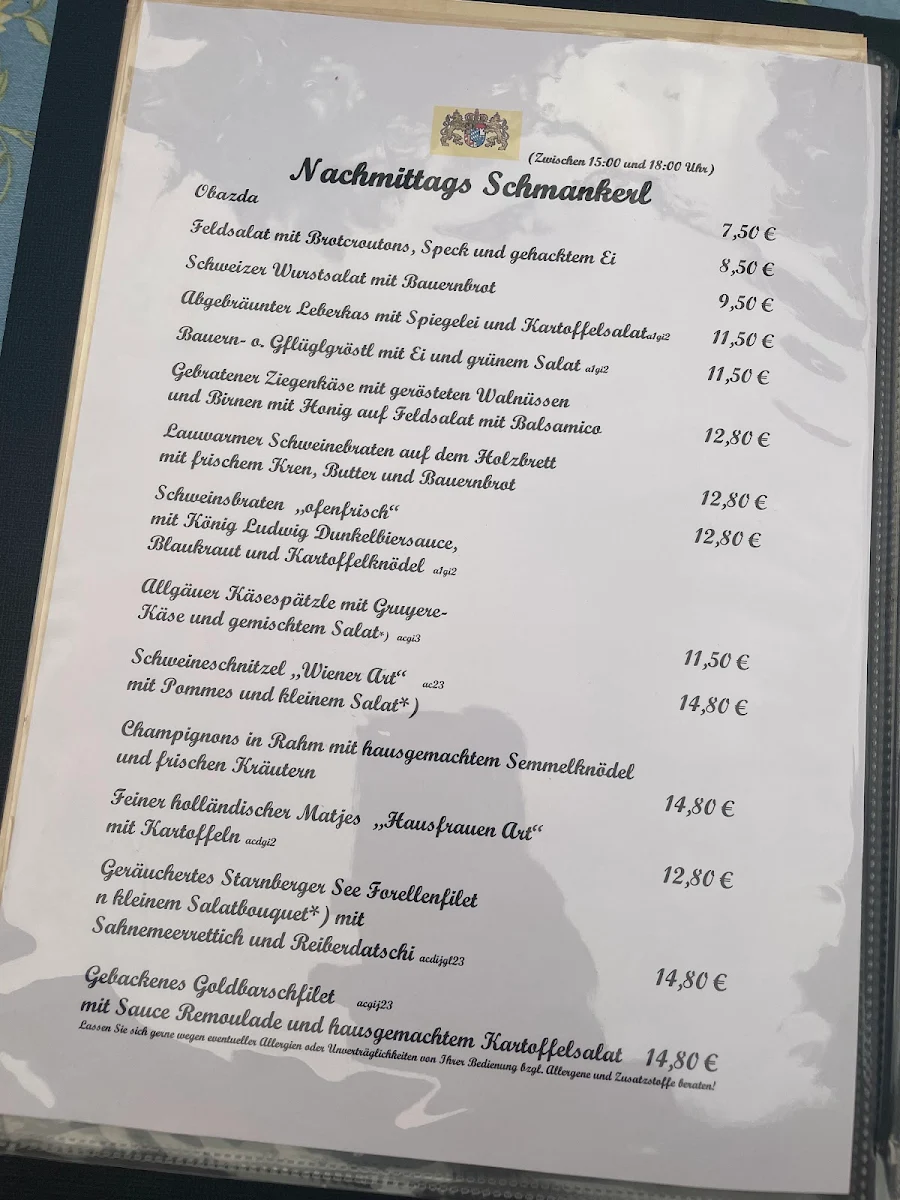 (Zwischen 15:00 und 18:00 Uhr)
Nachmittags Schmankerl
Obazda 7,50 €
Feldsalat mit Brotcroutons, Speck und gehacktem Ei 8,50 €
Schweizer Wurstsalat mit Bauernbrot 9,50 €
Abgebräunter Leberkas mit Spiegelei und Kartoffelsalat a1gi2 11,50 €
Bauern- o. Gflüglgröstl mit Ei und grünem Salat a1gi2 11,50 €
Gebratener Ziegenkäse mit gerösteten Walnüssen
und Birnen mit Honig auf Feldsalat mit Balsamico 12,80 €
Lauwarmer Schweinebraten auf dem Holzbrett
mit frischem Kren, Butter und Bauernbrot 12,80 €
Schweinsbraten „ofenfrisch“ 12,80 €
mit König Ludwig Dunkelbiersauce,
Blaukraut und Kartoffelknödel a1gi2
Allgäuer Käsespätzle mit Gruyere-
Käse und gemischtem Salat*) acgi3 11,50 €
Schweineschnitzel „Wiener Art“ ac23
mit Pommes und kleinem Salat*) 14,80 €
Champignons in Rahm mit hausgemachtem Semmelknödel
und frischen Kräutern 14,80 €
Feiner holländischer Matjes „Hausfrauen Art“
mit Kartoffeln acdgi2 12,80 €
Geräuchertes Starnberger See Forellenfilet
n kleinem Salatbouquet*) mit
Sahnemeerrettich und Reiberdatschi acdijgl23 14,80 €
Gebackenes Goldbarschfilet acgij23
mit Sauce Remoulade und hausgemachtem Kartoffelsalat 14,80 €
Lassen Sie sich gerne wegen eventueller Allergien oder Unverträglichkeiten von Ihrer Bedienung bzgl. Allergene und Zusatzstoffe beraten!